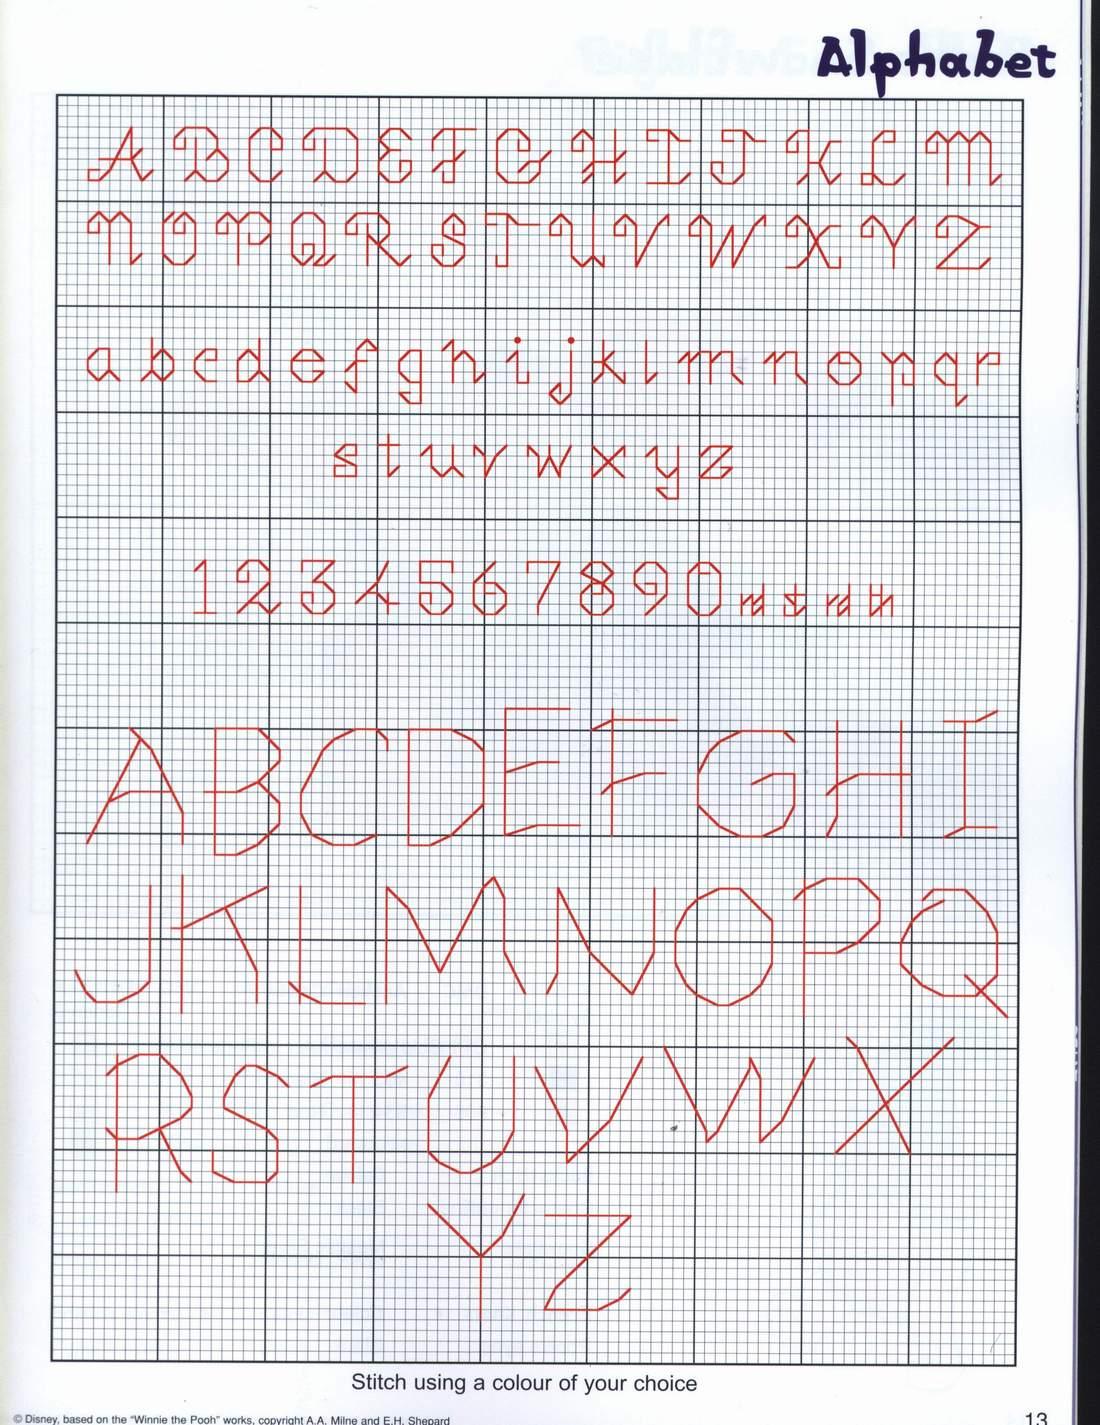 Alphabet
A B C D E F G H I J K L M
N O P Q R S T U V W X Y Z
a b c d e f g h i j k l m n o p q r
s t u v w x y z
1 2 3 4 5 6 7 8 9 0 nd st rd th
A B C D E F G H I
J K L M N O P Q
R S T U V W X
Y Z
Stitch using a colour of your choice
© Disney, based on the "Winnie the Pooh" works, copyright A.A. Milne and E.H. Shepard
13